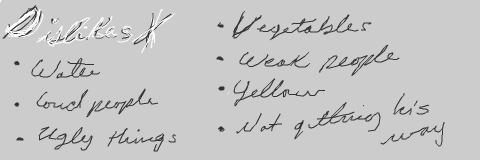 Dislikes X
• Water
• Loud people
• Ugly things
• Vegetables
• Weak people
• Yellow
• Not gthing his
way